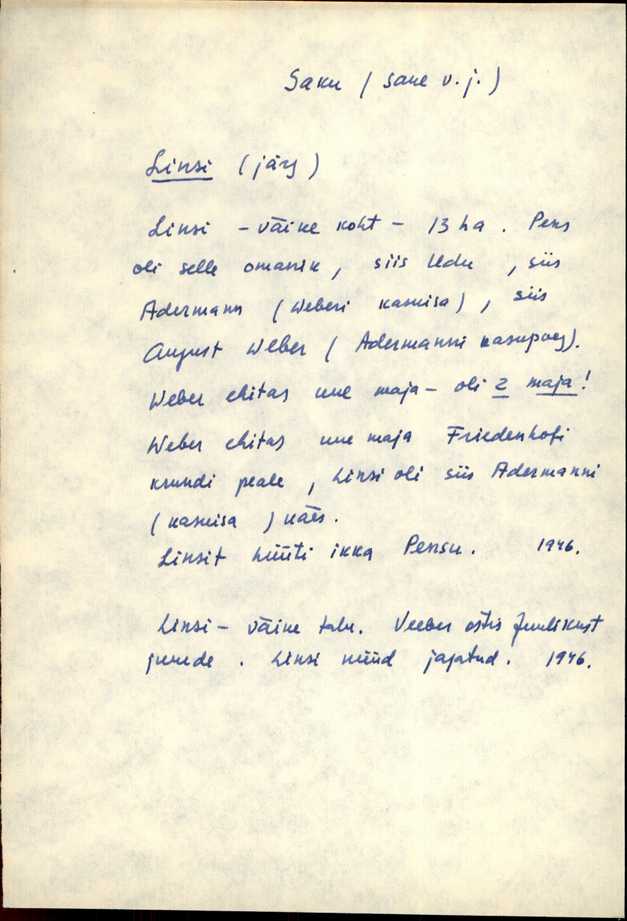 Saku (Saue v.j.)
Linsi (järg)
Linsi - väike koht - 13 ha. Pens
oli selle omanik, siis Udu, siis
Adermann (Weberi kasuisa), siis
August Weber (Adermanni kasupoeg).
Weber ehitas uue maja - oli 2 maja!
Weber ehitas uue maja Friedenhofi
krundi peale, Linsi oli siis Adermanni
(kasuisa) käes.
Linsit hüüti ikka Pensu. 1946.
Linsi - väike talu. Veeber ostis Juulikust
juurde. Linsi nüüd jagatud. 1946.